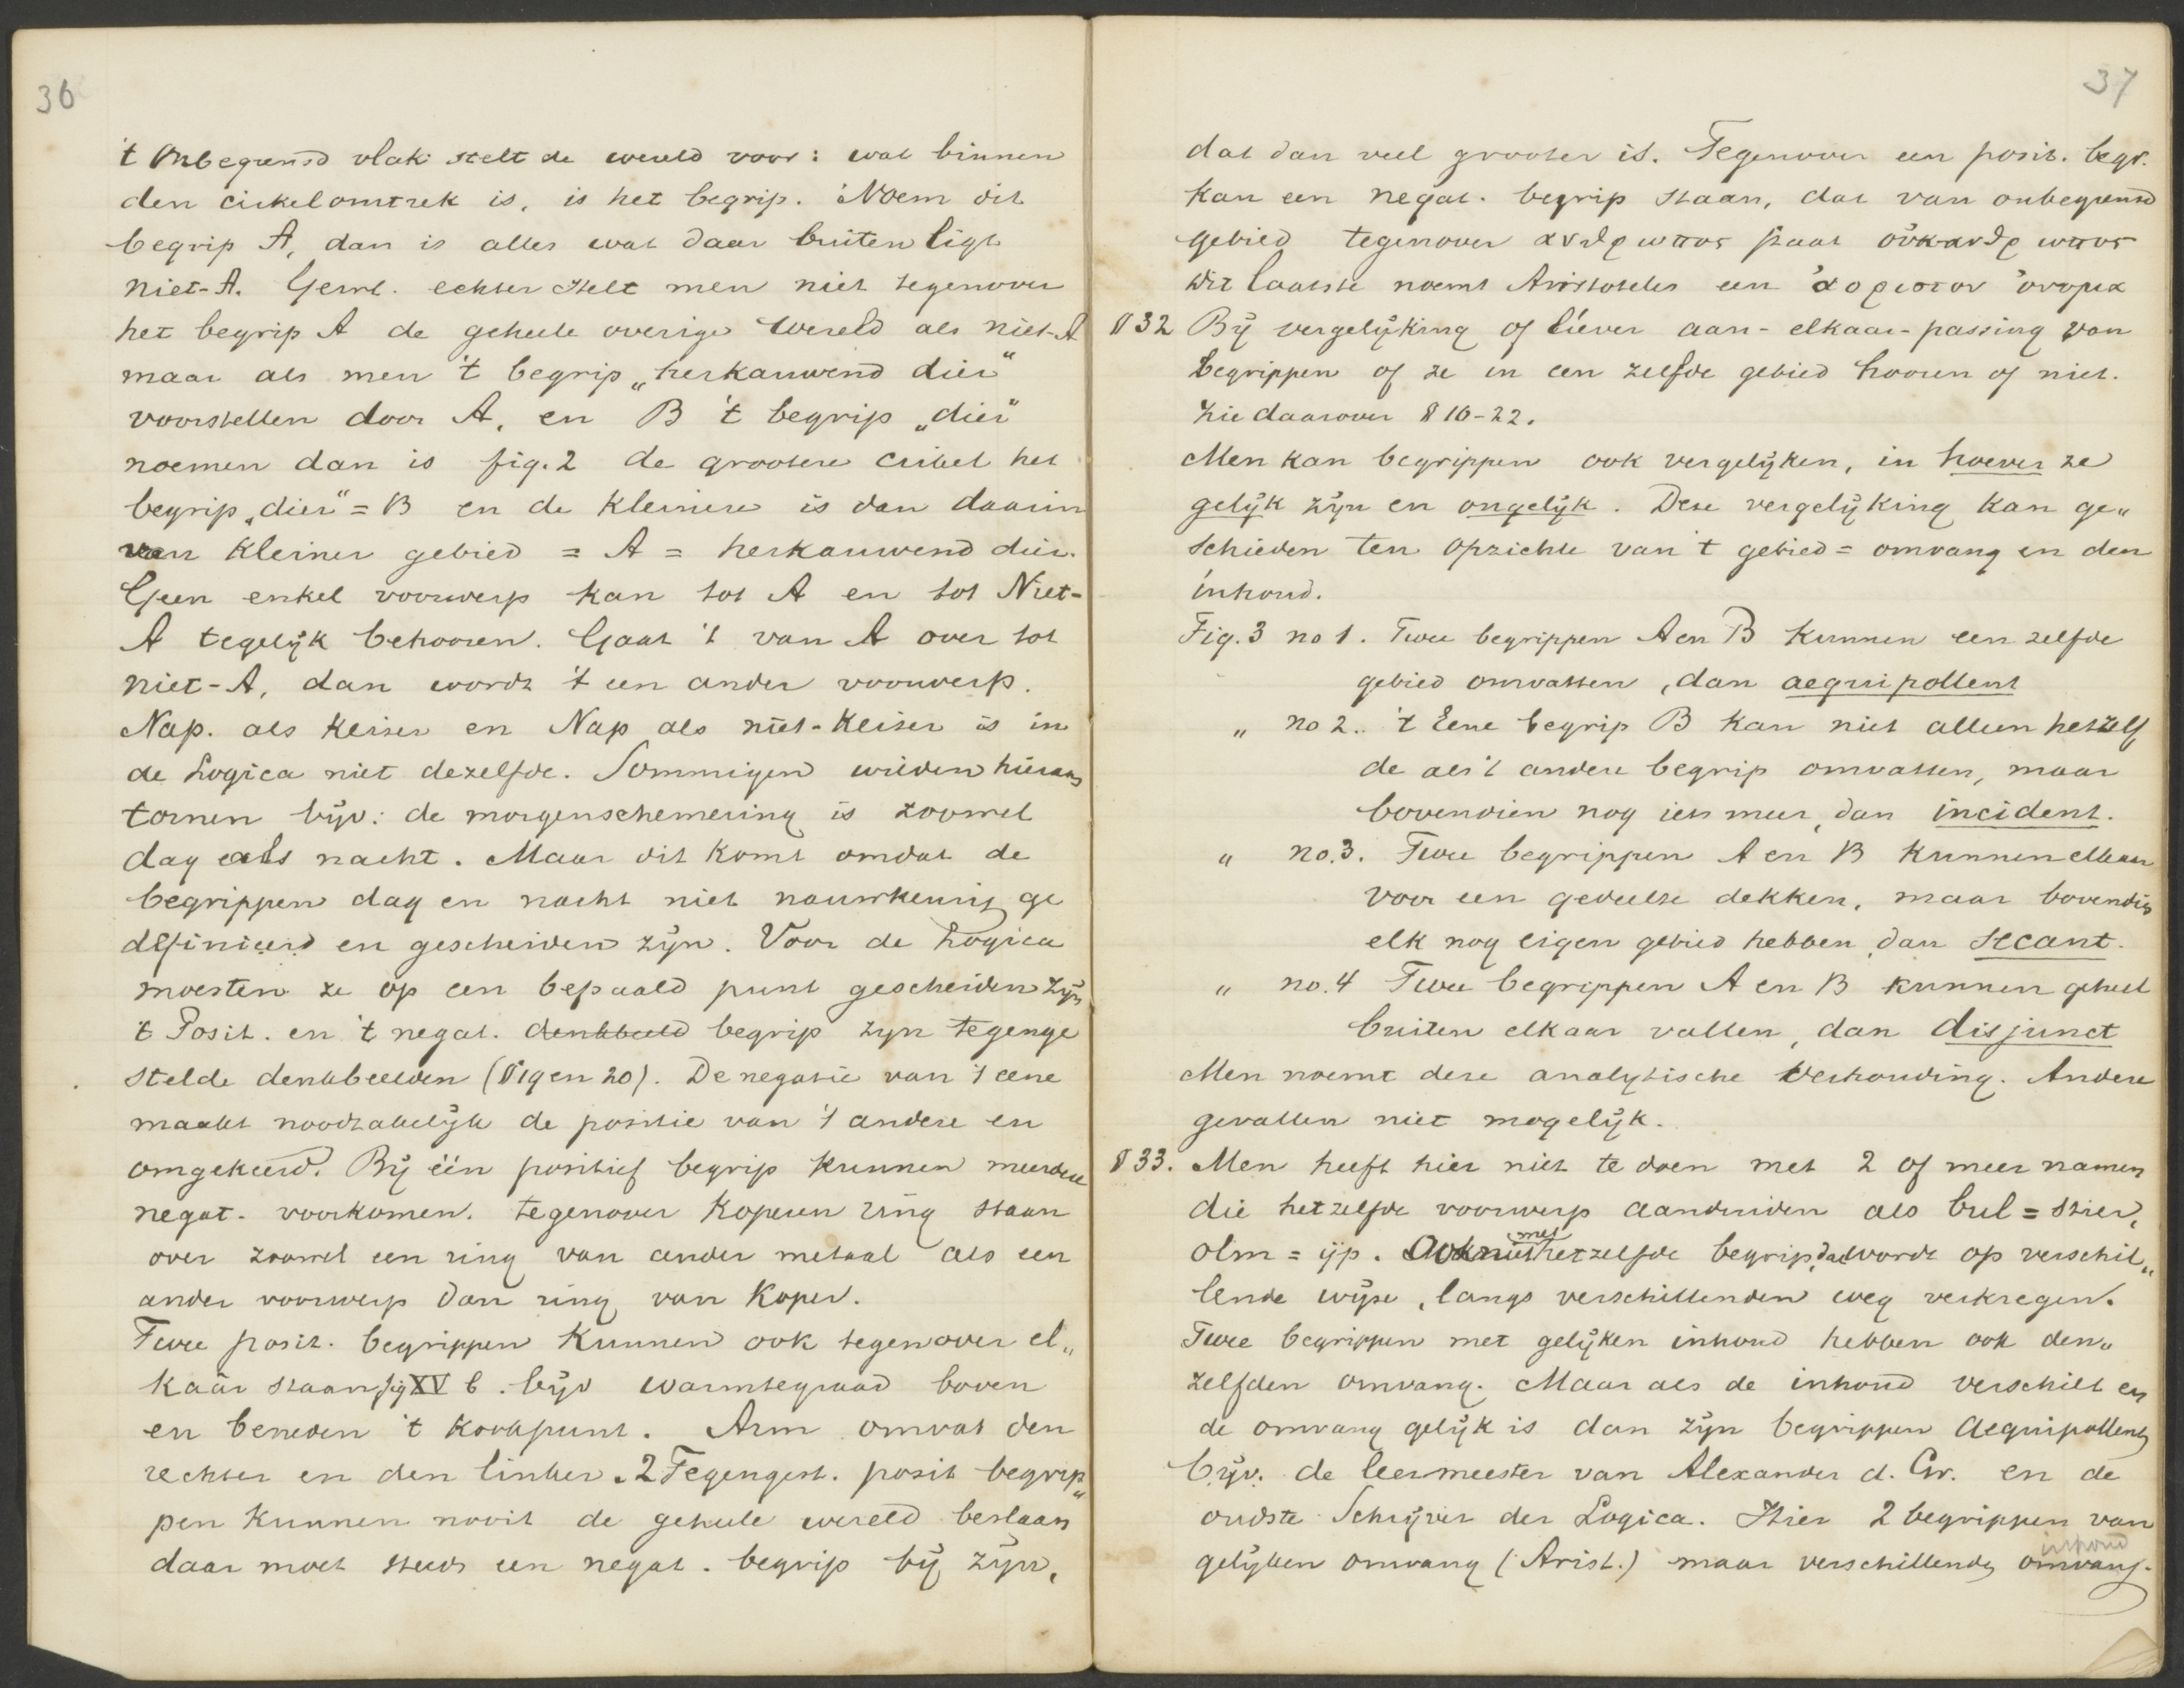 36
't Onbegrensd vlak stelt de wereld voor: wat binnen
den cirkelomtrek is, is het begrip. Noem dit
begrip A, dan is alles wat daar buiten ligt
niet-A. Gewl. echter stelt men niet tegenover
het begrip A de geheele overige wereld als niet-A
maar als men 't begrip „herkauwend dier"
voorstellen door A, en B 't begrip „dier"
noemen dan is fig. 2 de grootere cirkel het
begrip „dier" = B en de kleinere is dan daarin
van kleiner gebied = A = herkauwend dier.
Geen enkel voorwerp kan tot A en tot Niet-
A tegelijk behooren. Gaat 't van A over tot
niet-A, dan wordt 't een ander voorwerp.
Nap. als keiser en Nap als niet-keiser is in
de Logica niet dezelfde. Sommigen wilden hieraan
tornen bijv: de morgenschemering is zoowel
dag als nacht. Maar dit komt omdat de
begrippen dag en nacht niet nauwkeurig ge
definieerd en gescheiden zijn. Voor de Logica
moesten ze op een bepaald punt gescheiden zijn
't Posit. en 't negat. denkbeeld begrip zyn tegenge
stelde denkbeelden (§ 19 en 20). De negatie van 't eene
maakt noodzakelijk de positie van 't andere en
omgekeerd. Bij één positief begrip kunnen meerdere
negat. voorkomen. tegenover koperen ring staan
over zoowel een ring van ander metaal als een
ander voorwerp dan ring van koper.
Twee posit. begrippen kunnen ook tegenover el„
kaâr staan fig XV b. bijv warmtegraad boven
en beneden 't kookpunt. Arm omvat den
rechter en den linker. 2 Tegengest. posit begrip„
pen kunnen nooit de geheele wereld beslaan
daar moet steeds een negat. begrip bij zijn,
37
dat dan veel grooter is. Tegenover een posit. begr.
kan een negat. begrip staan, dat van onbegrensd
gebied tegenover ανθρωπος staat οὐκανθρωπος
dit laatste noemt Aristoteles een ἀοριστον ὀνομα
§ 32 Bij vergelijking of liever aan-elkaar-passing van
begrippen of ze in een zelfde gebied hooren of niet.
Zie daarover § 16-22.
Men kan begrippen ook vergelijken, in hoever ze
gelijk zijn en ongelijk. Deze vergelijking kan ge„
schieden ten opzichte van 't gebied = omvang en den
inhoud.
Fig. 3 no 1. Twee begrippen A en B kunnen een zelfde
gebied omvatten, dan aequipollent
„ no 2. 't Eene begrip B kan niet alleen hetzelf
de als 't andere begrip omvatten, maar
bovendien nog iets meer, dan incident.
„ no. 3. Twee begrippen A en B kunnen elkaar
voor een gedeelte dekken, maar bovendien
elk nog eigen gebied hebben, dan secant.
„ no. 4 Twee begrippen A en B kunnen geheel
buiten elkaar vallen, dan disjunct
Men noemt deze analytische verhouding. Andere
gevallen niet mogelijk.
§ 33. Men heeft hier niet te doen met 2 of meer namen
die hetzelfde voorwerp aanduiden als bul = stier,
olm = ijp. Ook niet met hetzelfde begrip, dat wordt op verschil„
lende wijze, langs verschillenden weg verkregen.
Twee begrippen met gelijken inhoud hebben ook den„
zelfden omvang. Maar als de inhoud verschilt en
de omvang gelijk is dan zijn begrippen aequipollent
bijv. de leermeester van Alexander d. Gr. en de
oudste Schrijver der Logica. Hier 2 begrippen van
gelijken omvang (Arist.) maar verschillende omvang.
inhoud